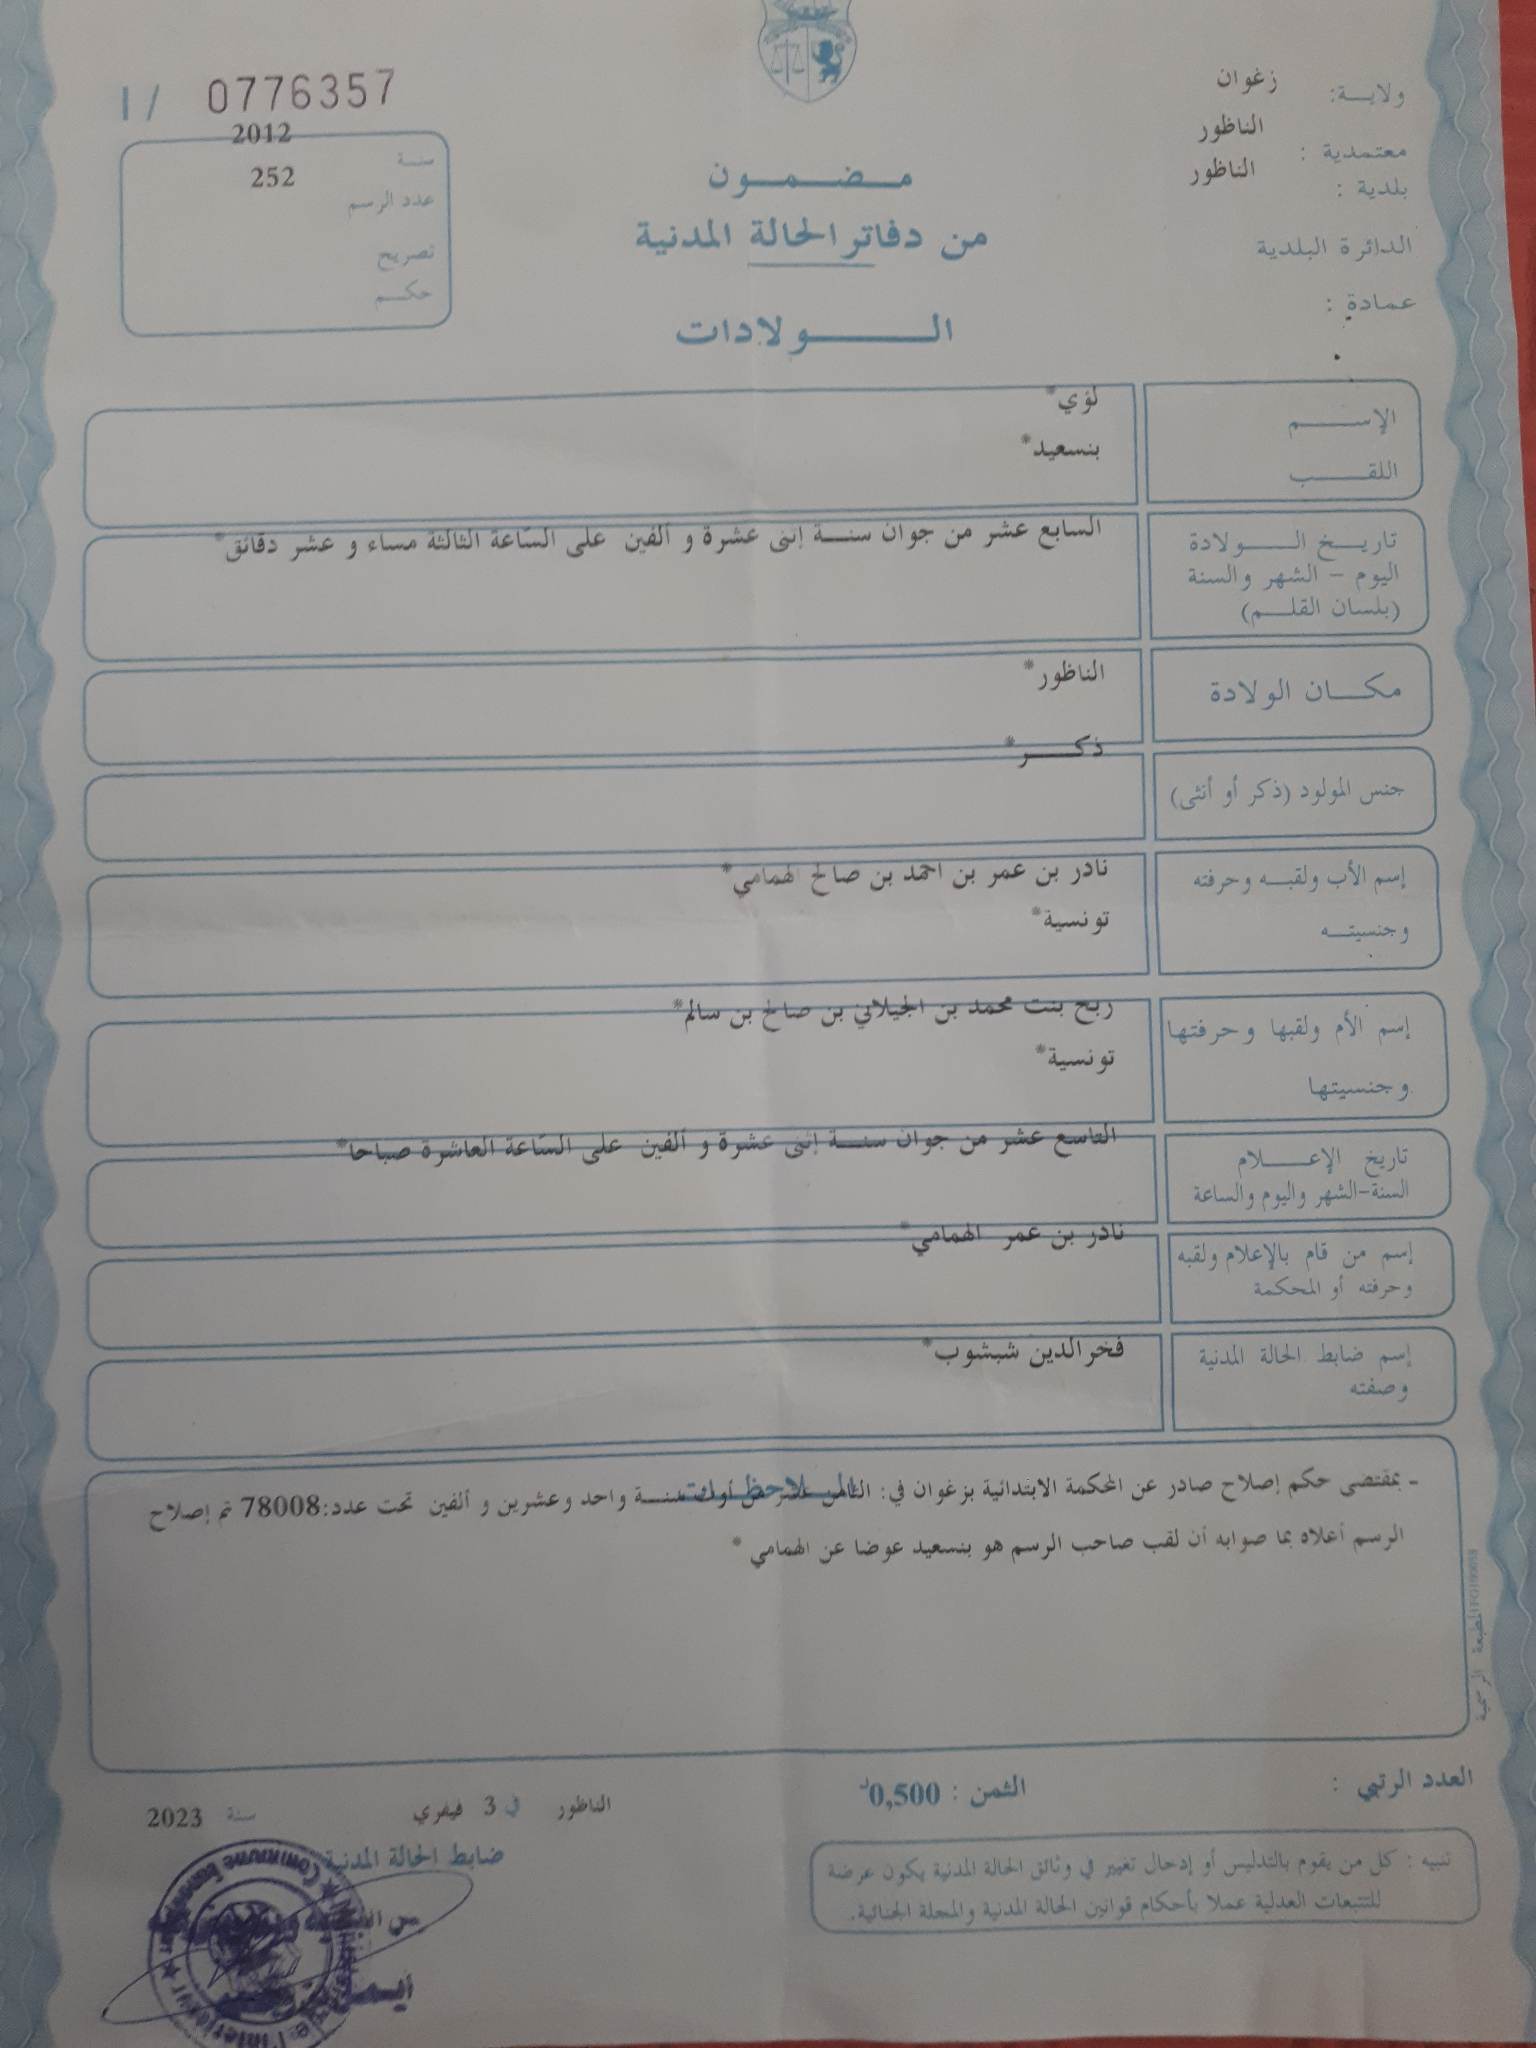 I / 0776357
ولاية: زغوان
معتمدية : الناظور
بلدية : الناظور
الدائرة البلدية
عمادة :
سنة 2012
عدد الرسم 252
تصريح
حكم
مضمون
من دفاتر الحالة المدنية
الولادات
الإسم لؤي*
اللقب بنسعيد*
تاريخ الولادة
اليوم - الشهر والسنة
(بلسان القلم)
السابع عشر من جوان سنة إثنى عشرة و ألفين على السّاعة الثالثة مساء و عشر دقائق*
مكان الولادة الناظور*
جنس المولود (ذكر أو أنثى) ذكر*
إسم الأب ولقبه وحرفته نادر بن عمر بن احمد بن صالح الهمامي*
وجنسيته تونسية*
إسم الأم ولقبها وحرفتها ربح بنت محمد بن الجيلاني بن صالح بن سالم*
وجنسيتها تونسية*
تاريخ الإعلام
السنة-الشهر واليوم والساعة
التاسع عشر من جوان سنة إثنى عشرة و ألفين على السّاعة العاشرة صباحا*
إسم من قام بالإعلام ولقبه
وحرفته أو المحكمة
نادر بن عمر الهمامي*
إسم ضابط الحالة المدنية
وصفته
فخرالدين شبشوب*
الملاحظات
- بمقتضى حكم إصلاح صادر عن المحكمة الابتدائية بزغوان في: الثامن عشر من أوت سنة واحد وعشرين و ألفين تحت عدد:78008 تم إصلاح
الرسم أعلاه بما صوابه أن لقب صاحب الرسم هو بنسعيد عوضا عن الهمامي *
المطبعة الرسمية
العدد الرتبي :
الثمن : 0,500د
الناظور في 3 فيفري سنة 2023
ضابط الحالة المدنية
تنبيه : كل من يقوم بالتدليس أو إدخال تغيير في وثائق الحالة المدنية يكون عرضة
للتتبعات العدلية عملا بأحكام قوانين الحالة المدنية والمجلة الجنائية.
Commune Ennadhour